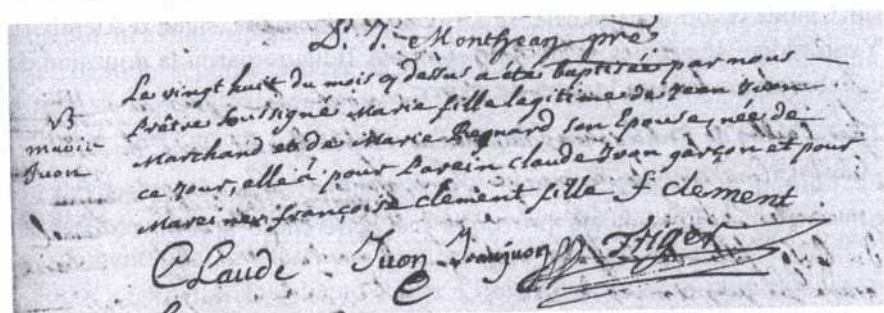 D. J. Montjean pre
Le vingt huit du mois cy dessus a été baptisée par nous
Prêtre soussigné Marie fille legitime de Jean Juon
Marchand et de Marie Regnard son Epouse, née de
ce jour, elle à pour Parein Claude Juon garçon et pour
Mareinne françoise Clement fille f clement
B
marie
Juon
Claude Juon Jean juon Triger